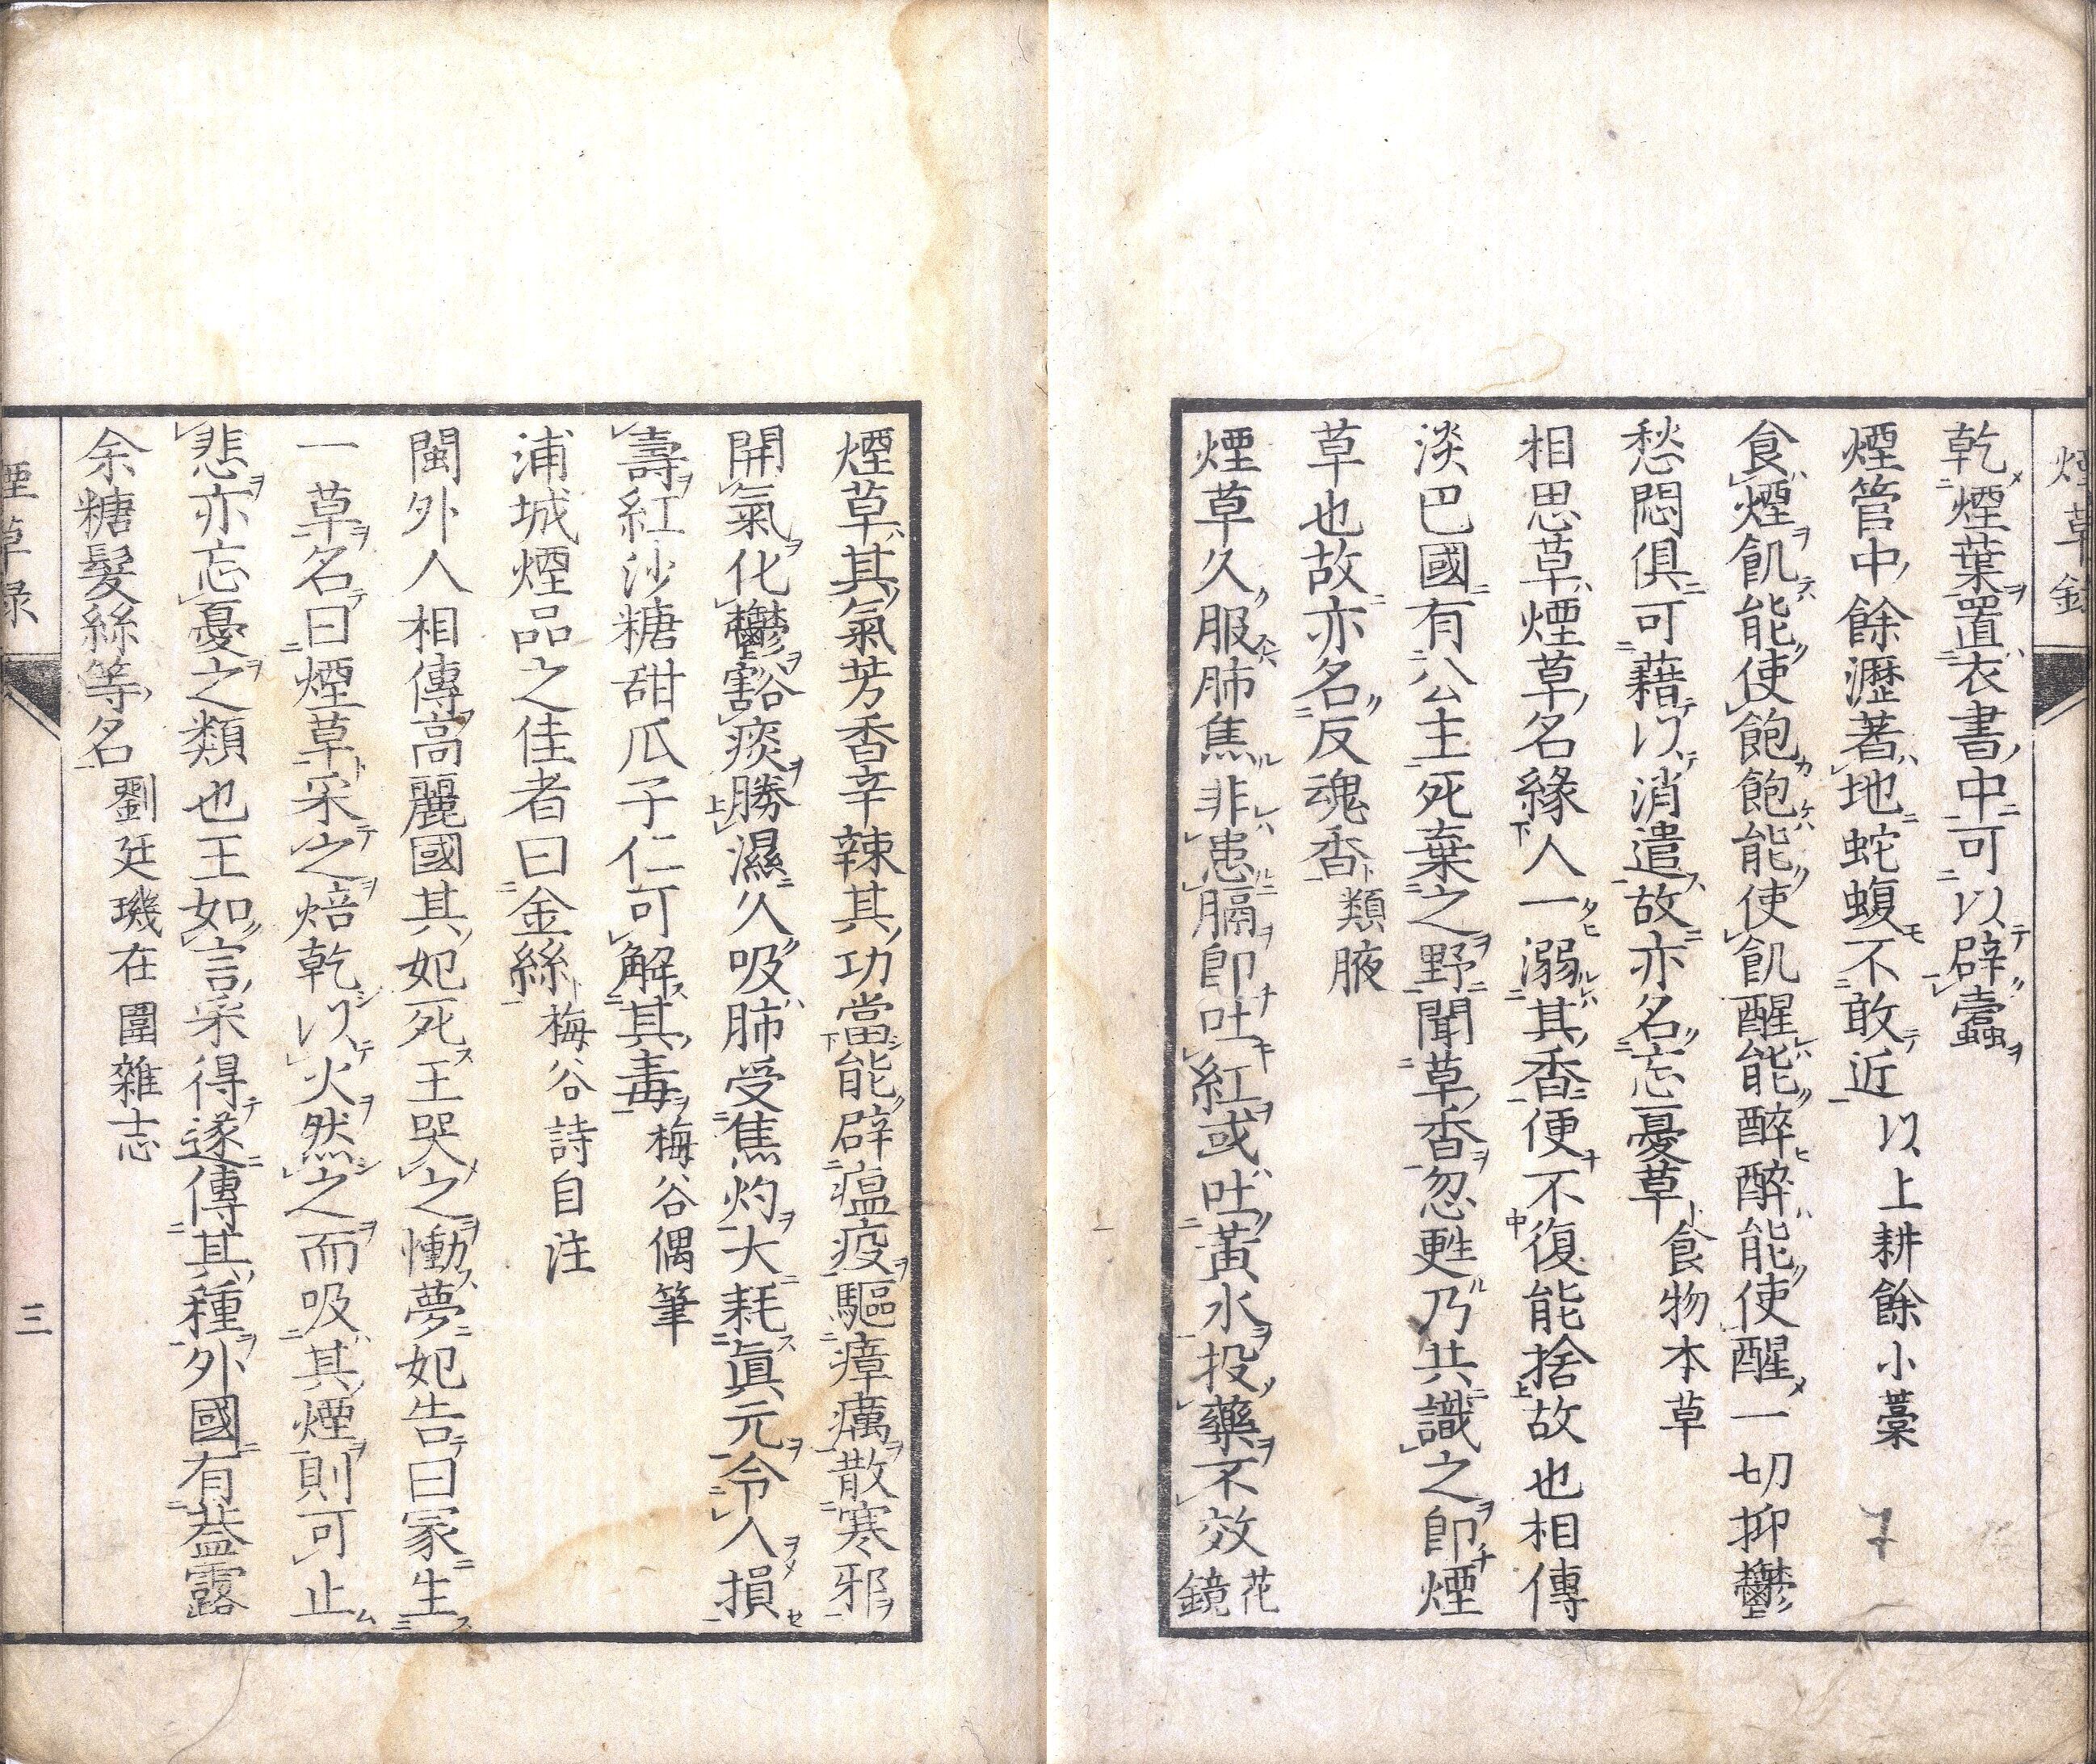 煙草録
乾煙葉置衣書中可以辟蠧
煙管中餘瀝著地蛇蝮不敢近 以上耕餘小藁
食煙飢能使飽飽能使飢醒能醉醉能使醒一切抑鬱
愁悶俱可藉以消遣故亦名忘憂草 食物本草
相思草煙草名緣人一溺其香便不復能捨故也相傳
淡巴國有公主死棄之野聞草香忽甦乃共識之即煙
草也故亦名反魂香 類腋
煙草久服肺焦非患膈即吐紅或吐黃水投藥不效 花鏡
煙草其氣芳香辛辣其功當能辟瘟疫驅瘴癘散寒邪
開氣化鬱豁痰勝濕久吸肺受焦灼大耗眞元令人損
壽紅沙糖甜瓜子仁可解其毒 梅谷偶筆
浦城煙品之佳者曰金絲 梅谷詩自注
閩外人相傳高麗國其妃死王哭之慟夢妃告曰冢生
一草名曰煙草采之焙乾以火然之而吸其煙則可止
悲亦忘憂之類也王如言采得遂傳其種外國有葢露
余糖髮絲等名 劉廷璣在園雜志
煙草録
三